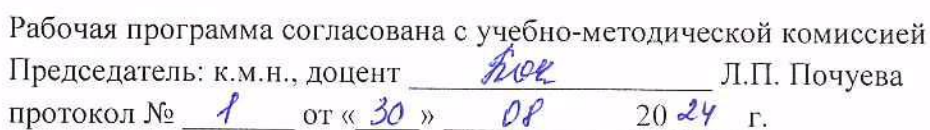 Рабочая программа согласована с учебно-методической комиссией
Председатель: к.м.н., доцент Л.П. Почуева
протокол № 1 от « 30 » 08 2024 г.